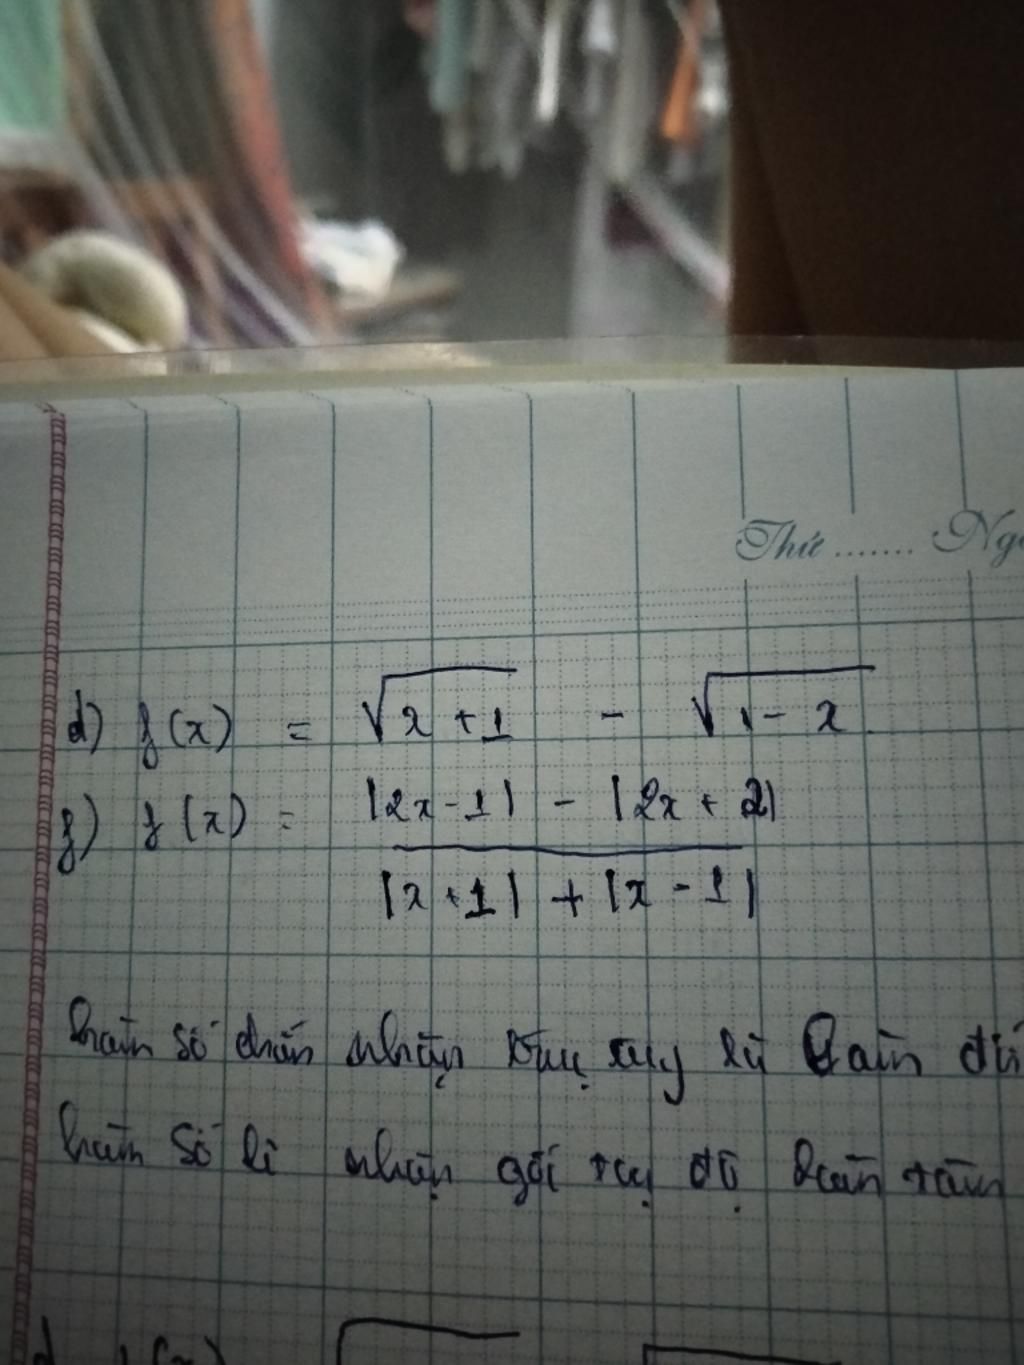 Thứ ....... Ngà
d) f(x) = √(x + 1) - √(1 - x)
f) f(x) = (|2x - 1| - |2x + 2|) / (|x + 1| + |x - 1|)
hàm số chẵn nhận trục oy là
hàm số lẻ nhận gốc tọa độ làm tâm